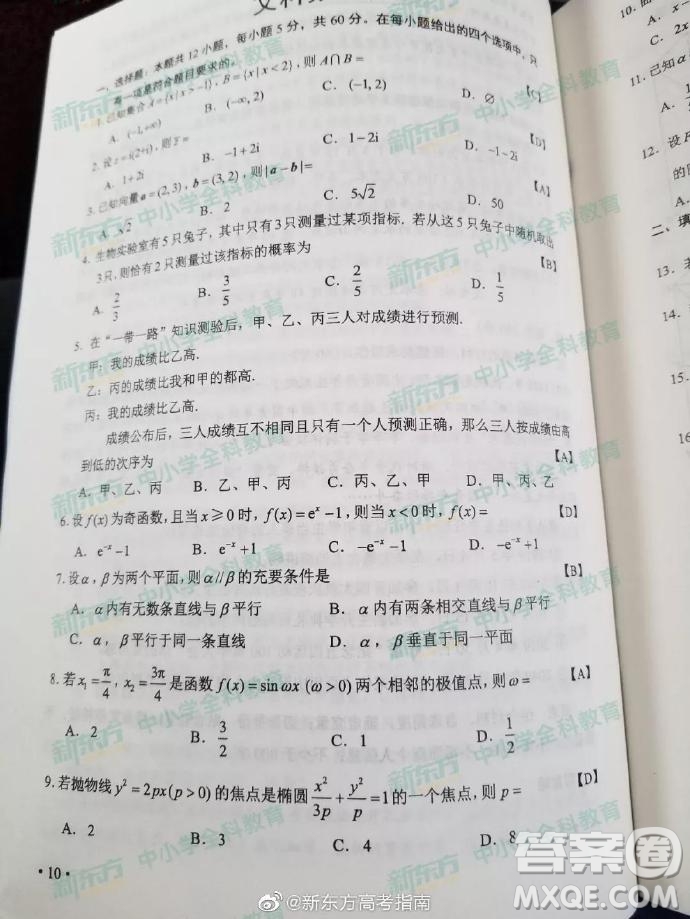 一、选择题：本题共 12 小题，每小题 5 分，共 60 分。在每小题给出的四个选项中，只
有一项是符合题目要求的。
1. 已知集合 A={x|x>−1}，B={x|x<2}，则 A∩B= 【C】
A. (−1,+∞) B. (−∞, 2) C. (−1, 2) D. ∅
2. 设 z=i(2+i)，则 z̅= 【D】
A. 1+2i B. −1+2i C. 1−2i D. −1−2i
3. 已知向量 a=(2,3)，b=(3,2)，则|a−b|= 【A】
A. √2 B. 2 C. 5√2 D. 50
4. 生物实验室有 5 只兔子，其中只有 3 只测量过某项指标．若从这 5 只兔子中随机取出
3 只，则恰有 2 只测量过该指标的概率为 【B】
A. 2/3 B. 3/5 C. 2/5 D. 1/5
5. 在“一带一路”知识测验后，甲、乙、丙三人对成绩进行预测.
甲：我的成绩比乙高.
乙：丙的成绩比我和甲的都高.
丙：我的成绩比乙高.
成绩公布后，三人成绩互不相同且只有一个人预测正确，那么三人按成绩由高
到低的次序为 【A】
A. 甲、乙、丙 B. 乙、甲、丙 C. 丙、乙、甲 D. 甲、丙、乙
6. 设 f(x) 为奇函数，且当 x≥0 时，f(x)=eˣ−1，则当 x<0 时，f(x)= 【D】
A. e⁻ˣ−1 B. e⁻ˣ+1 C. −e⁻ˣ−1 D. −e⁻ˣ+1
7. 设 α，β 为两个平面，则 α//β 的充要条件是 【B】
A. α 内有无数条直线与 β 平行 B. α 内有两条相交直线与 β 平行
C. α，β 平行于同一条直线 D. α，β 垂直于同一平面
8. 若 x₁=π/4，x₂=3π/4 是函数 f(x)=sinωx (ω>0) 两个相邻的极值点，则 ω= 【A】
A. 2 B. 3/2 C. 1 D. 1/2
9. 若抛物线 y²=2px(p>0) 的焦点是椭圆 x²/3p+y²/p=1 的一个焦点，则 p= 【D】
A. 2 B. 3 C. 4 D. 8
·10·
10.
A.
C.
11. 已知
A.
12. 设
的
二、填
13.
14.
15.
16.
新东方 中小学全科教育
@新东方高考指南
答案圈
MXQE.COM